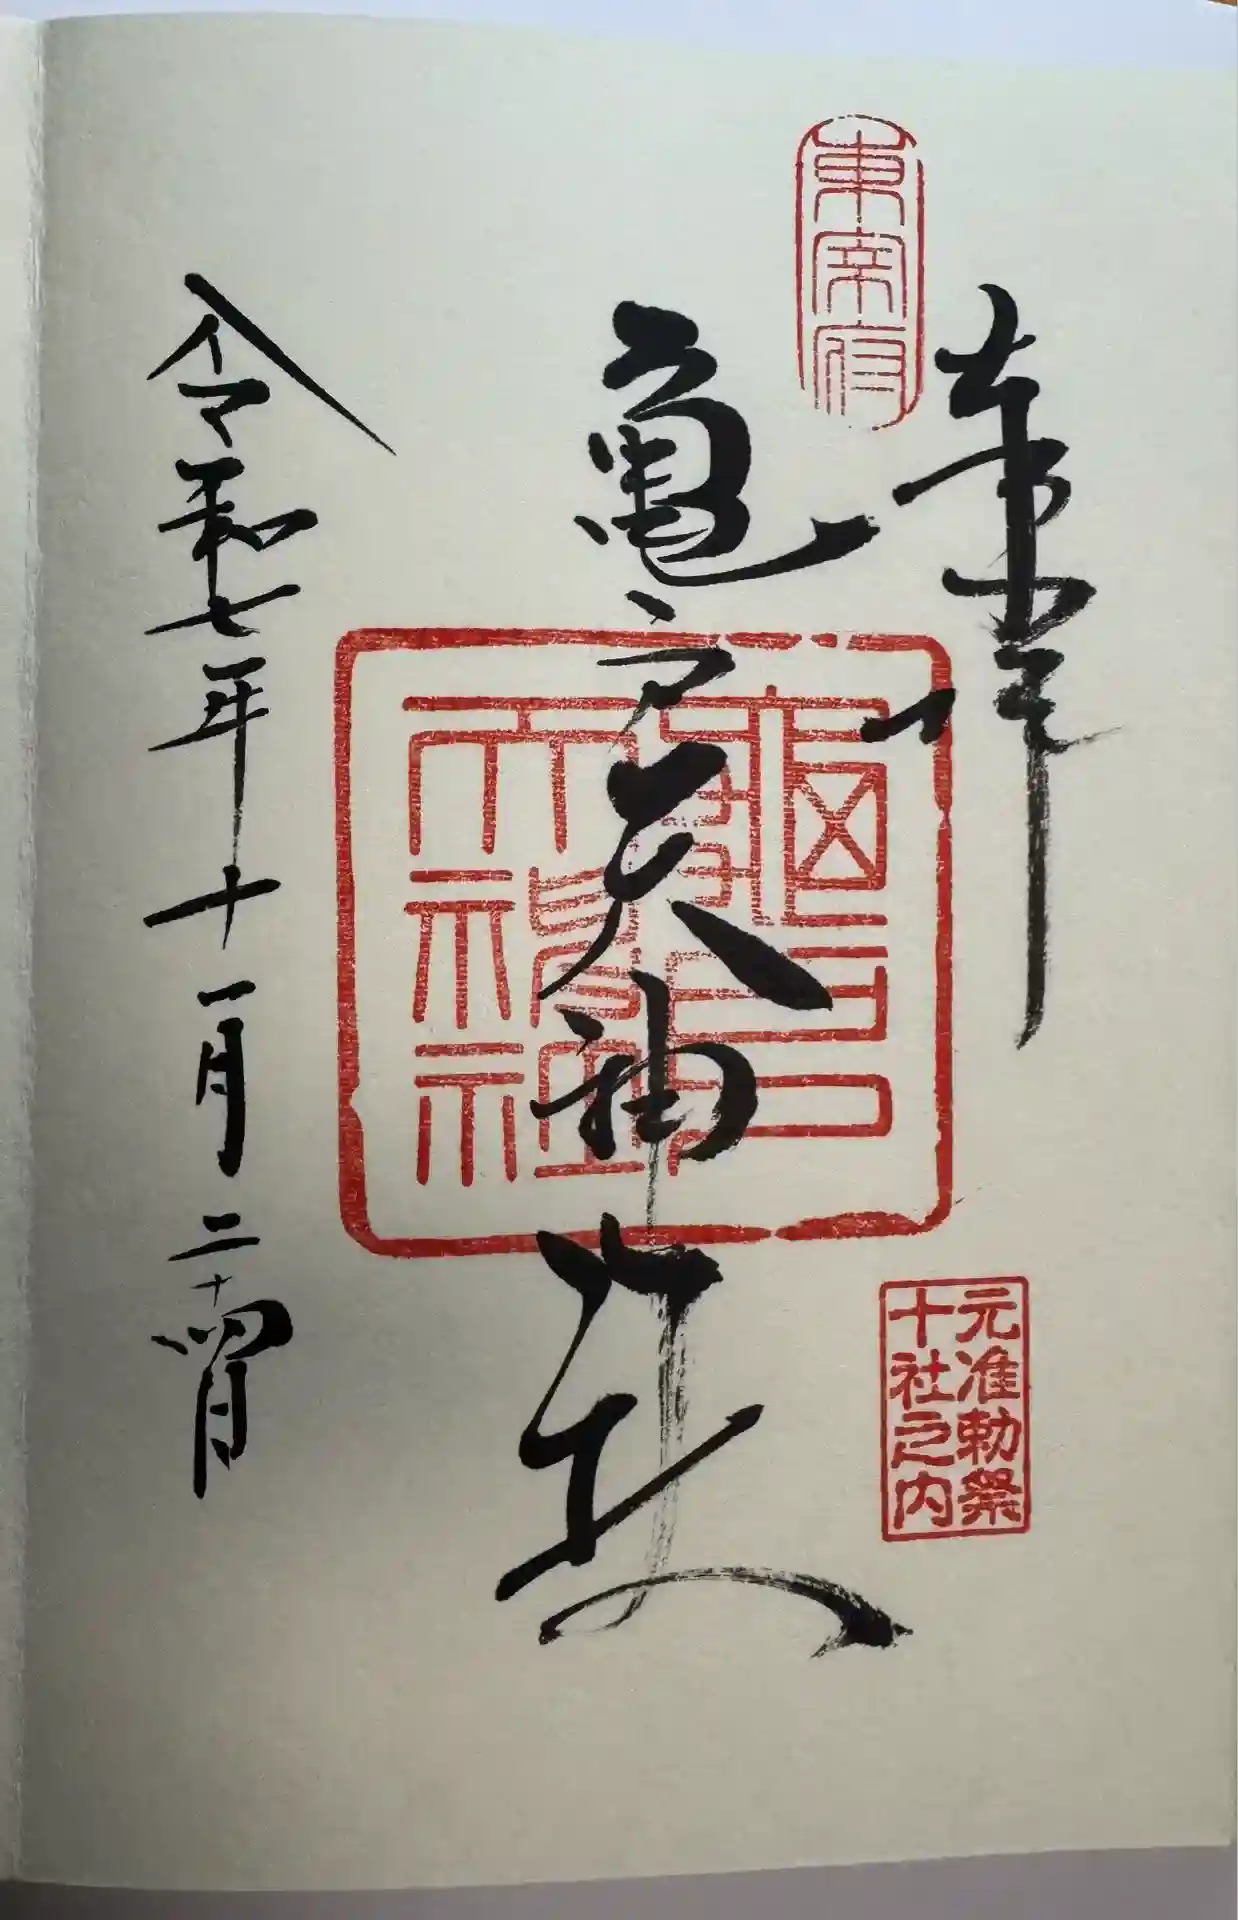 奉拝
東宰府
元准勅祭
十社之内
亀戸天神社
龜戸
天神社
令和七年十一月二十四日